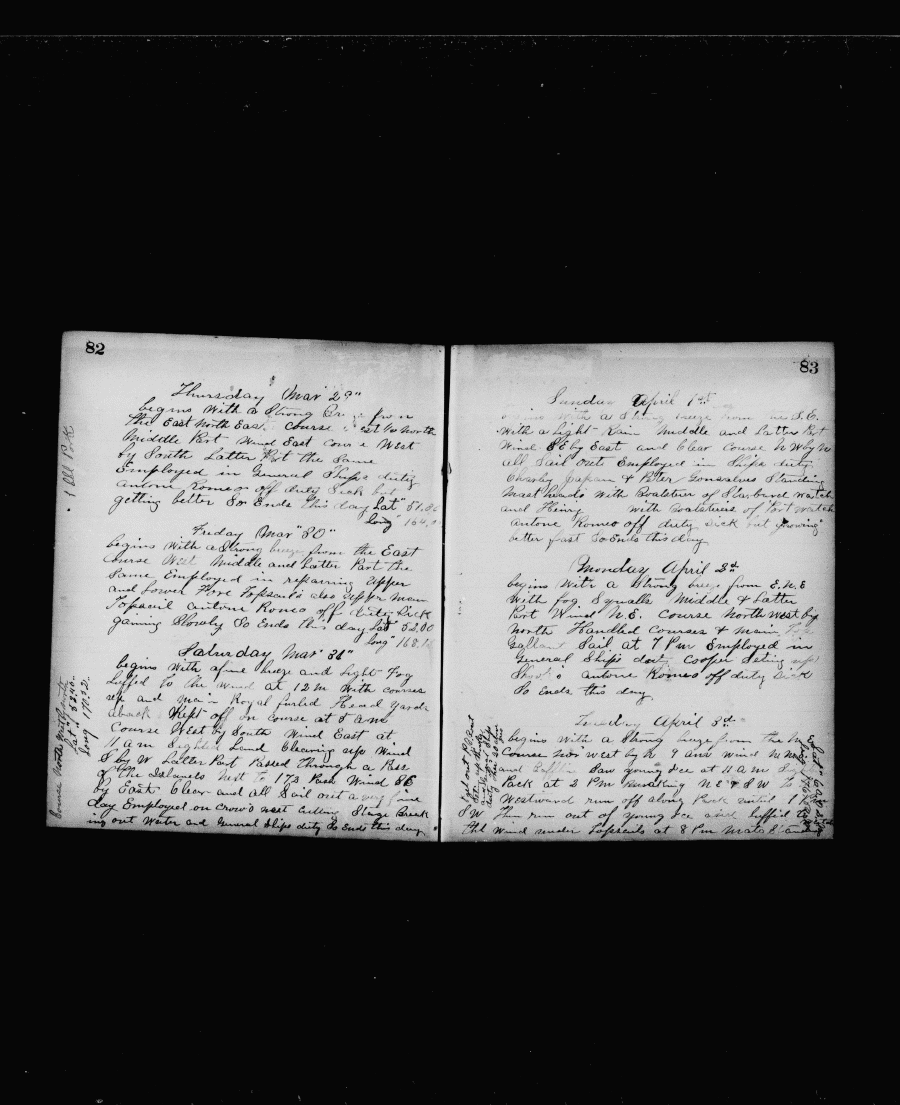 82
Thursday Mar 29"
begins With a Strong from
the East North East Course West to North
Middle Part Wind East Course West
by South Latter Part the Same
Employed in General Ships duty
antone Romeo off duty Sick but
getting better So Ends this day Lat"
Long" 164
1 Bbl Pork
Friday Mar" 30"
begins With a Strong breeze from the East
Course West Middle and Latter Part the
Same Employed in repairing upper
and Lower Fore Topsails also upper Main
Topsail antone Romeo off duty Sick
gaining Slowly So Ends this day Lat" 52.00
Long" 168.
Saturday Mar" 31"
begins With a fine breeze and Light Fog
Luffed to the Wind at 12 M With courses
up and Main Royal furled Head Yards
aback Kept off on Course at 5 am
Course West by South Wind East at
11 am Sighted Land Clearing up Wind
S by W Latter Part Passed through a Pass
of the Islands West to 172 Pass Wind SE
by East Clear and all Sail out a very fine
day Employed on crows nest Cutting Stage Break
ing out Water and General Ships duty So Ends this day
Course North
Lat"
Long 172.
83
Sunday April 1st
begins With a Strong breeze from S.E.
With a Light Rain Middle and Latter Part
Wind SE by East and Clear Course N W by N
all Sail out Employed in Ships duty
Charley Japan & Peter Gonsalves Standing
Mast heads With Boatsteerer of Starboard Watch
and Henry With Boatsteerers of Port Watch
Antone Romeo off duty Sick but growing
better fast So Ends this day
Monday April 2nd
begins With a Strong breeze from E.N.E
With fog Squalls Middle & Latter
Part Wind N.E. Course North West by
North Handled Courses & Main
Gallant Sail at 7 Pm Employed in
General Ships duty Cooper Seting up
Shooks antone Romeo off duty Sick
So Ends this day
Tuesday April 3rd
begins With a Strong breeze from the N
Course Nor West by N and Wind N
and Saw young Ice at 11 am
Pack at 2 Pm Making N E & S W to
Westward run off along Pack until
S W then run out of young Ice and Luffed to
the Wind under Topsails at 8 Pm